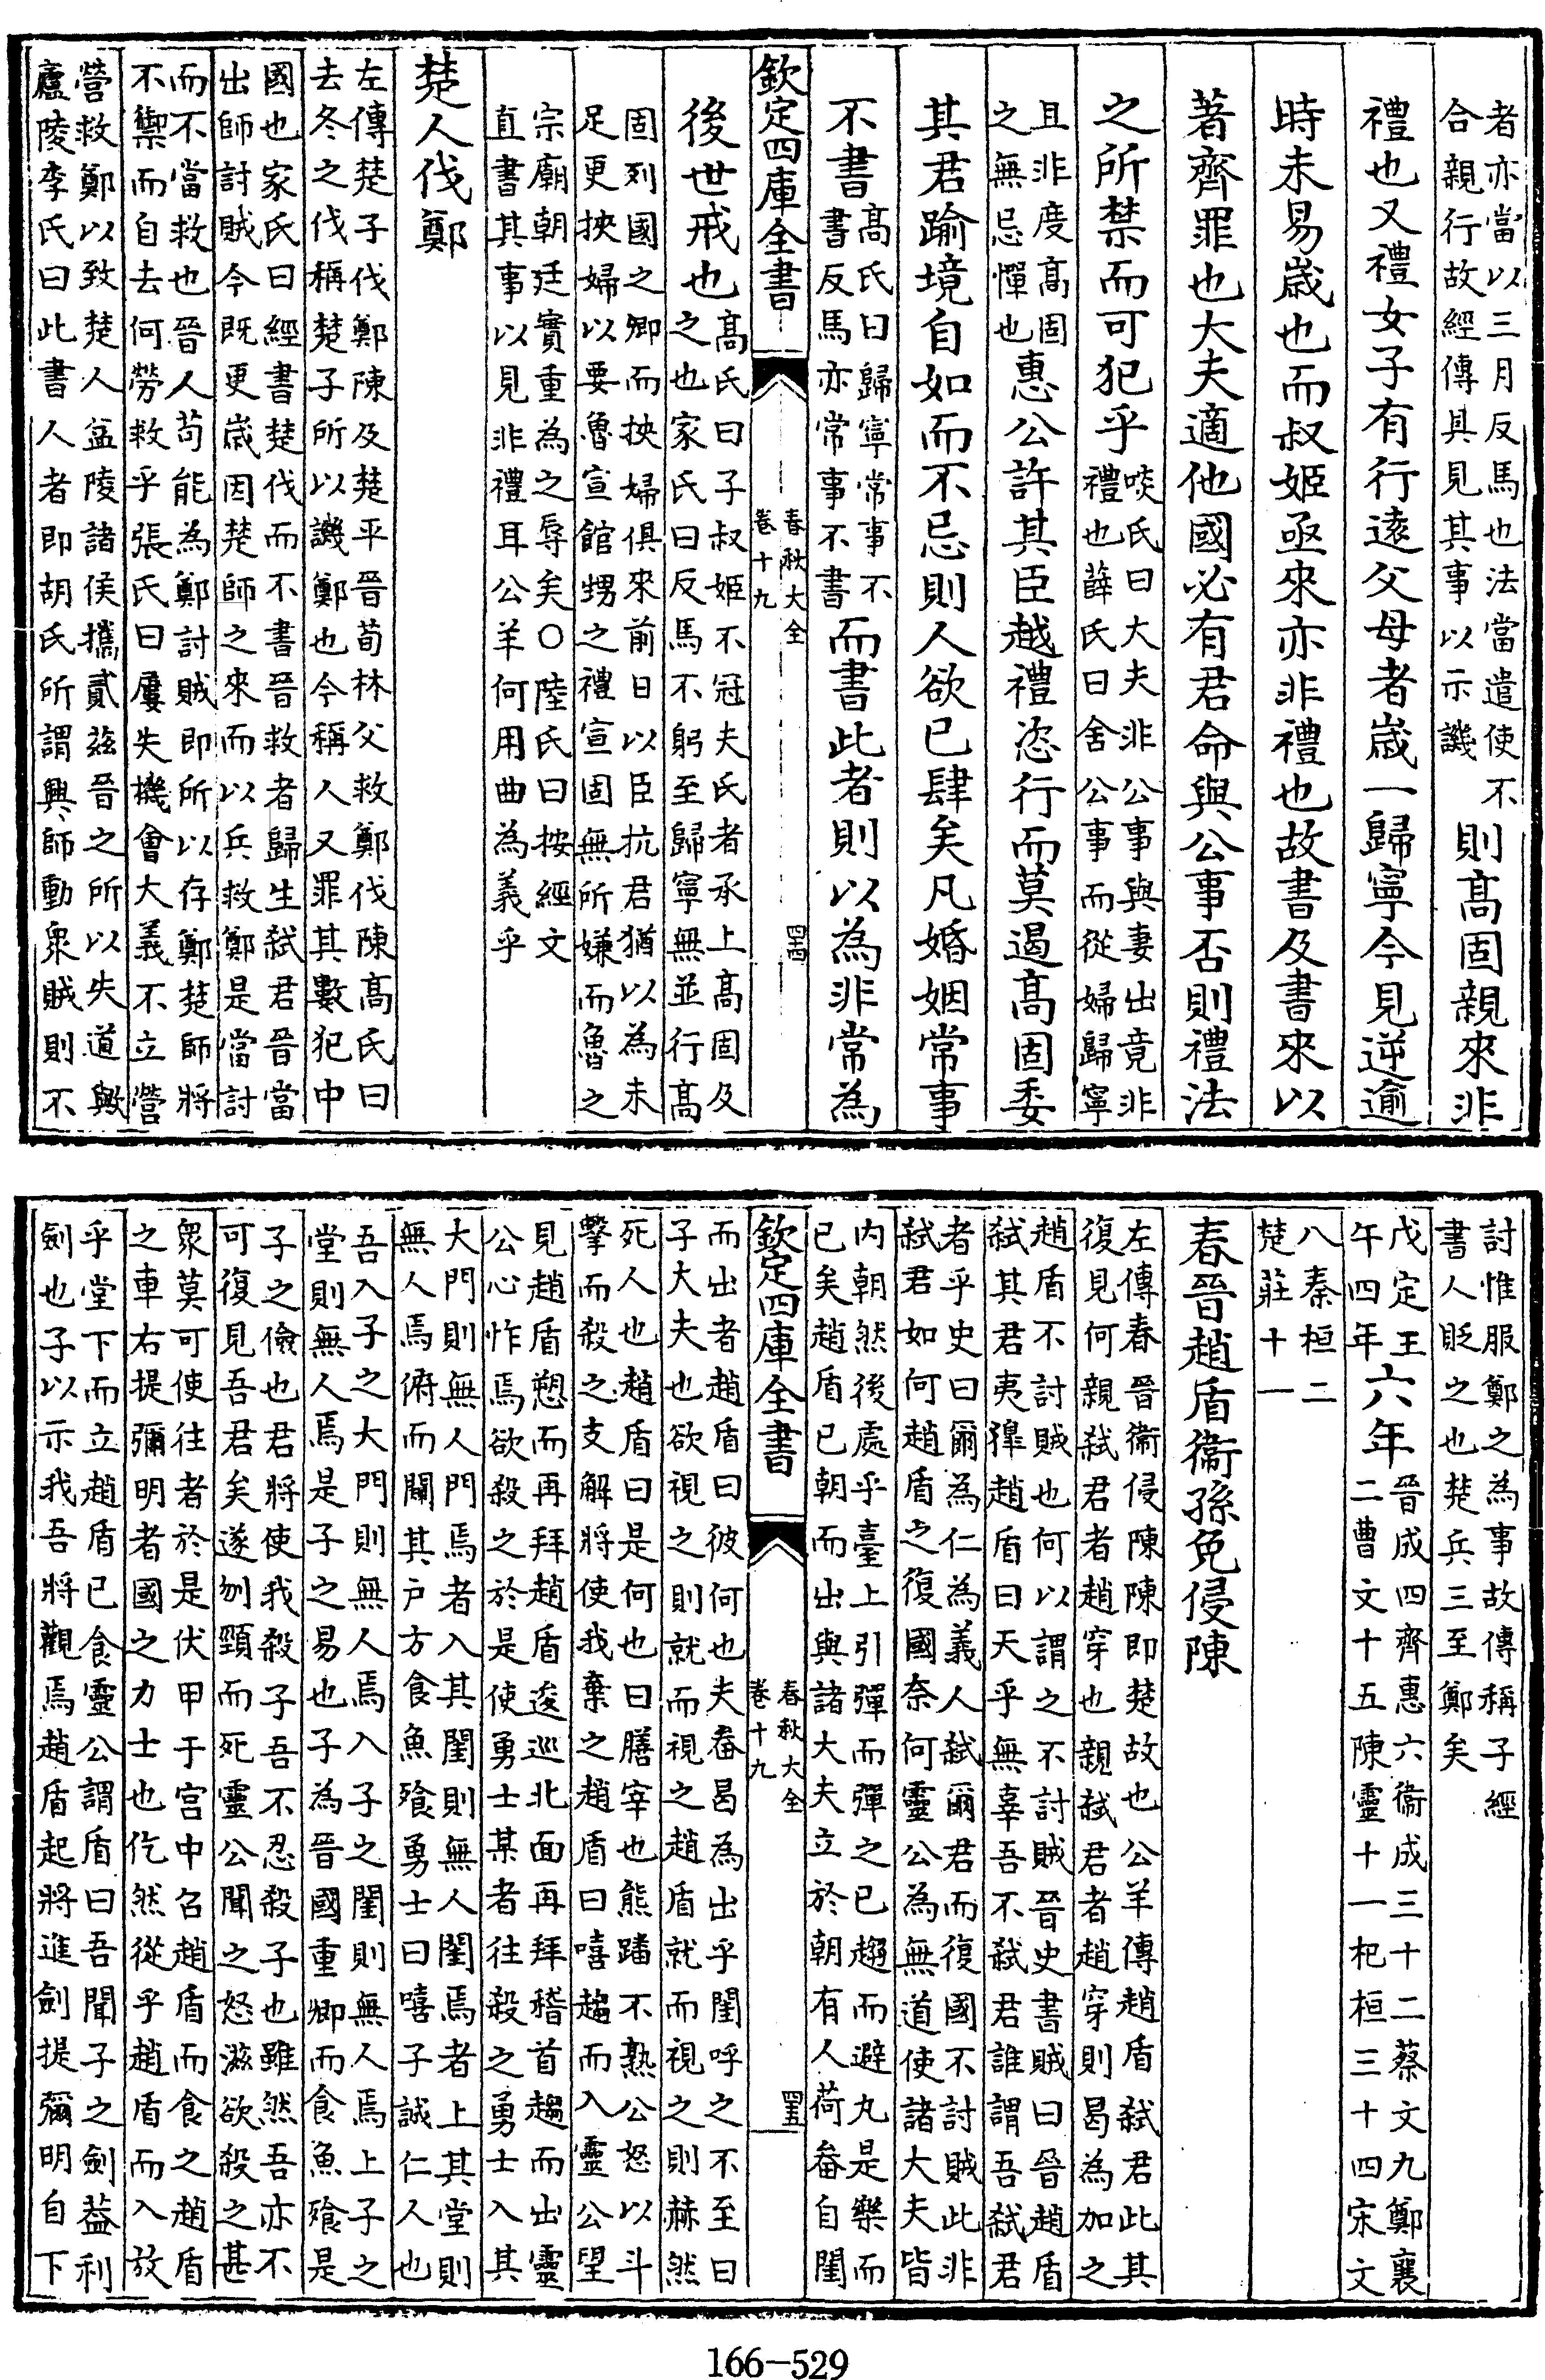 者亦當以三月反馬也法當遣使不
合親行故經傳具見其事以示譏
則髙固親來非
禮也又禮女子有行遠父母者歳一歸寧今見逆逾
時未易歳也而叔姬亟來亦非禮也故書及書來以
著齊罪也大夫適他國必有君命與公事否則禮法
之所禁而可犯乎
啖氏曰大夫非公事與妻出竟非
禮也薛氏曰舍公事而從婦歸寧
且非度髙固
之無忌憚也
惠公許其臣越禮恣行而莫遏髙固委
其君踰境自如而不忌則人欲已肆矣凡婚姻常事
不書
髙氏曰歸寧常事不
書反馬亦常事不書
而書此者則以為非常為
欽定四庫全書
春秋大全
卷十九
四十四
後世戒也
髙氏曰子叔姬不冠夫氏者承上髙固及
之也家氏曰反馬不躬至歸寧無並行髙
固列國之卿而挾婦俱來前日以臣抗君猶以為未
足更挾婦以要魯宣館甥之禮宣固無所嫌而魯之
宗廟朝廷實重為之辱矣○陸氏曰按經文
直書其事以見非禮耳公羊何用曲為義乎
楚人伐鄭
左傳楚子伐鄭陳及楚平晉荀林父救鄭伐陳髙氏曰
去冬之伐稱楚子所以譏鄭也今稱人又罪其數犯中
國也家氏曰經書楚伐而不書晉救者歸生弑君晉當
出師討賊今既更歳因楚師之來而以兵救鄭是當討
而不當救也晉人苟能為鄭討賊即所以存鄭楚師將
不禦而自去何勞救乎張氏曰屢失機會大義不立營
營救鄭以致楚人益陵諸侯攜貳兹晉之所以失道與
廬陵李氏曰此書人者即胡氏所謂興師動衆賊則不
討惟服鄭之為事故傳稱子經
書人貶之也楚兵三至鄭矣
戊定王
午四年
六年
晉成四齊惠六衞成三十二蔡文九鄭襄
二曹文十五陳靈十一杞桓三十四宋文
八秦桓二
楚莊十一
春晉趙盾衞孫免侵陳
左傳春晉衞侵陳陳即楚故也公羊傳趙盾弑君此其
復見何親弑君者趙穿也親弑君者趙穿則曷為加之
趙盾不討賊也何以謂之不討賊晉史書賊曰晉趙盾
弑其君夷獋趙盾曰天乎無辜吾不弑君誰謂吾弑君
者乎史曰爾為仁為義人弑爾君而復國不討賊此非
弑君如何趙盾之復國奈何靈公為無道使諸大夫皆
内朝然後處乎臺上引彈而彈之已趨而避丸是樂而
已矣趙盾已朝而出與諸大夫立於朝有人荷畚自閨
欽定四庫全書
春秋大全
卷十九
四十五
而出者趙盾曰彼何也夫畚曷為出乎閨呼之不至曰
子大夫也欲視之則就而視之趙盾就而視之則赫然
死人也趙盾曰是何也曰膳宰也熊蹯不熟公怒以斗
摮而殺之支解將使我棄之趙盾曰嘻趨而入靈公望
見趙盾愬而再拜趙盾逡巡北面再拜稽首趨而出靈
公心怍焉欲殺之於是使勇士某者往殺之勇士入其
大門則無人門焉者入其閨則無人閨焉者上其堂則
無人焉俯而闚其户方食魚飱勇士曰嘻子誠仁人也
吾入子之大門則無人焉入子之閨則無人焉上子之
堂則無人焉是子之易也子為晉國重卿而食魚飱是
子之儉也君將使我殺子吾不忍殺子也雖然吾亦不
可復見吾君矣遂刎頸而死靈公聞之怒滋欲殺之甚
衆莫可使往者於是伏甲于宫中召趙盾而食之趙盾
之車右提彌明者國之力士也仡然從乎趙盾而入放
乎堂下而立趙盾已食靈公謂盾曰吾聞子之劍葢利
劍也子以示我吾將觀焉趙盾起將進劍提彌明自下
166-529